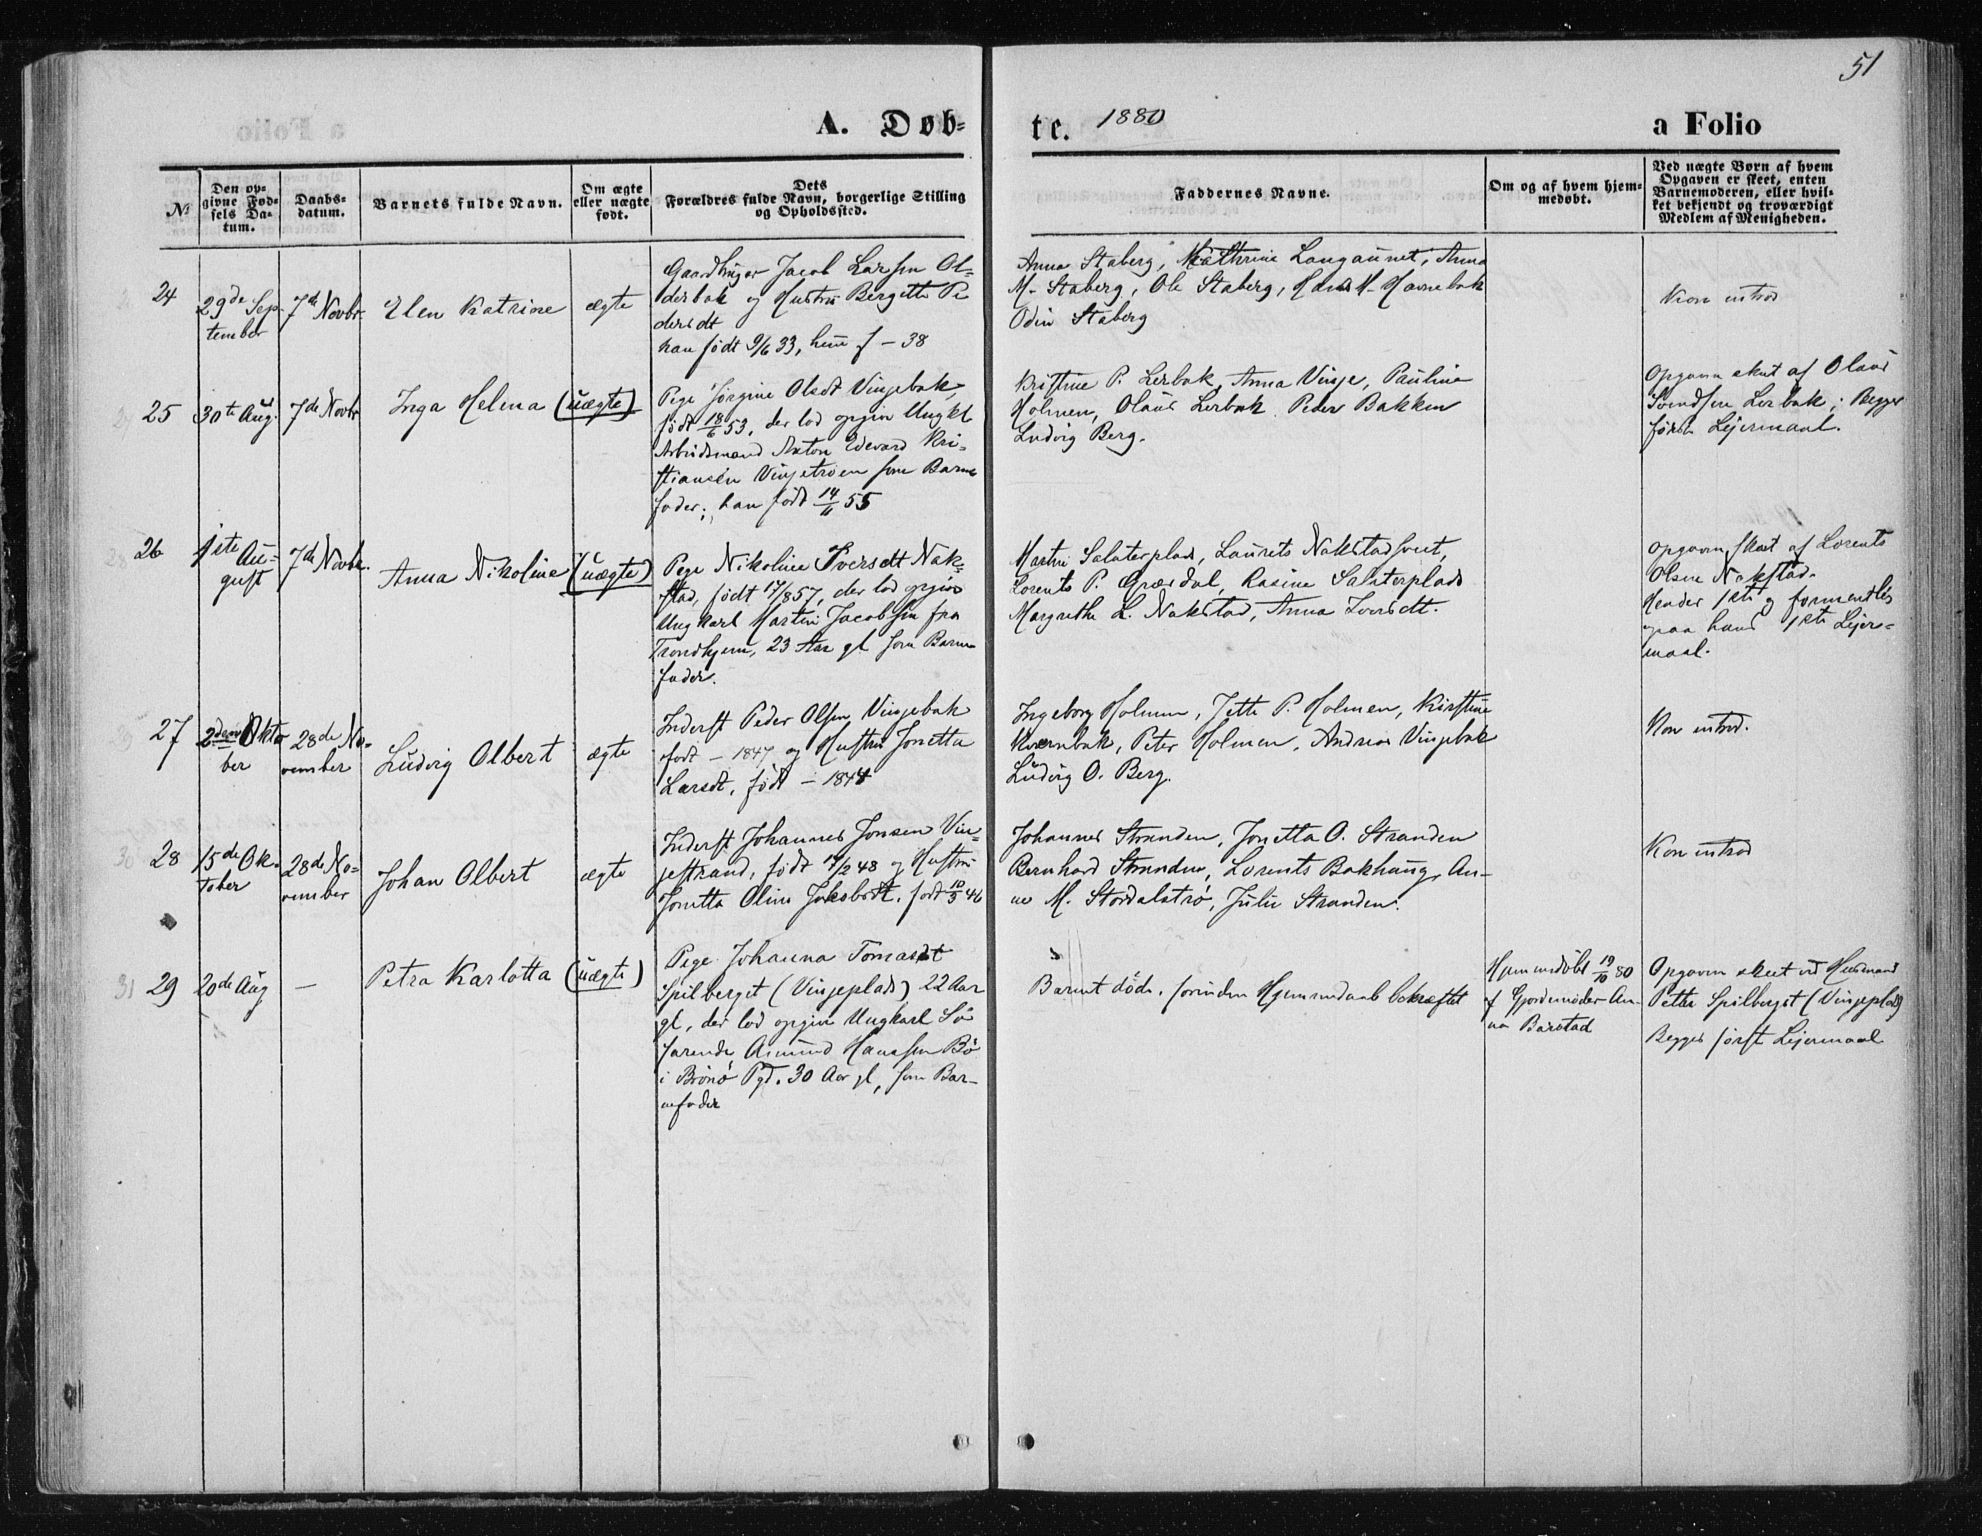 51
A. Døb-
te. 1880
a Folio
№
Den op-
givne Fød-
sels Da-
tum.
Daabs-
datum.
Barnets fulde Navn.
Om ægte
eller uægte
født.
Dets
Forældres fulde Navn, borgerlige Stilling
og Opholdssted.
Faddernes Navne.
Om og af hvem hjem-
medøbt.
Ved uægte Børn af hvem
Opgaven er skeet, enten
Barnemoderen, eller hvil-
ket bekjendt og troværdigt
Medlem af Menigheden.
24
29de Sep-
tember
7de Novbr.
Elen Katrine
ægte
Gaardbruger Jacob Larsen Ol-
derbak og Hustru Bergitte Pe
dersdt
han født 9/6 33, hun f - 38
Anna Staberg, Kathrine Langaunet, Anna
M. Staberg, Ole Staberg, Hans M. Havnebak
Odin Staberg
Kon introd
25
30te Aug.
7de Novbr
Inga Helma
(uægte)
Pige Jørgine Olsdt Vinjebak,
født 18/6 53, der lod opgive Ungkl
Arbeidsmand Anton Edevard Kri-
stiansen Vinjetrøen som Barne
fader; han født 14/11 55
Kristine P. Lerbak, Anna Vinje, Pauline
Holmen, Olaus Lerbak, Peder Bakken
Ludvig Berg.
Opgaven skeet af Olaus
Svendsen Lerbak; Begges
første Lejermaal.
26
1ste Au-
gust
7de Novbr.
Anna Nikoline
(uægte)
Pige Nikoline Iversdt Nak-
stad, født 17/8 57, der lod opgive
Ungkarl Martin Jacobsen fra
Trondhjem, 23 Aar gl som Barne
fader.
Martin Salaterplads, Laurits Nakstad
Lorents P. Grævdal, Rasine Salaterplads
Margrethe L. Nakstad, Anna Iversdt.
Opgaven skeet af Lorents
Olsen Nakstad.
Hendes 1ste og formentlig
ogsaa hans 1ste Lejer-
maal.
27
2den Okto
ber
28de No-
vember
Ludvig Olbert
ægte
Inderst Peder Olsen Vinjebak
født - 1847 og Hustru Jonetta
Larsdt, født - 1844
Ingeborg Holmen, Jette P. Holmen, Kirstine
Kvernbak, Peter Holmen, Andreas Vinjebak
Ludvig O. Berg.
Kon introd.
28
15de Ok-
tober
28de No-
vember
Johan Olbert
ægte
Inderst Johannes Jonsen Vin-
jestrand, født 14/2 48 og Hustru
Jonetta Oline Jakobsdt, født 10/3 46
Johannes Stranden, Jonetta O. Stranden
Bernhard Stranden, Lorents Bakhaug, An-
ne M. Stordalstrø, Julie Stranden.
Kon introd
31 29
20de Aug
-
Petra Karlotta
(uægte)
Pige Johanna Tomasdt
Spilberget (Vinjeplads) 22 Aar
gl, der lod opgive Ungkarl Sø-
farende Asmund Hanssen Bø
i Brønø Pgd. 30 Aar gl, som Bar-
nefader
Barnet døde, forinden Hjemmedaab bekræftet
Hjemmedøbt 19/10 80
af Gjordemoder An-
na Barstad
Opgaven skeet ved Husmand
Petter Spilberget (Vinjeplads)
Begges første Lejermaal